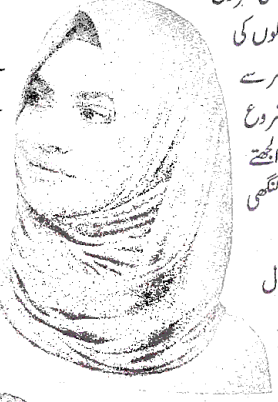 لوں کی
ر سے
روع
الجھتے
کنگھی
ل